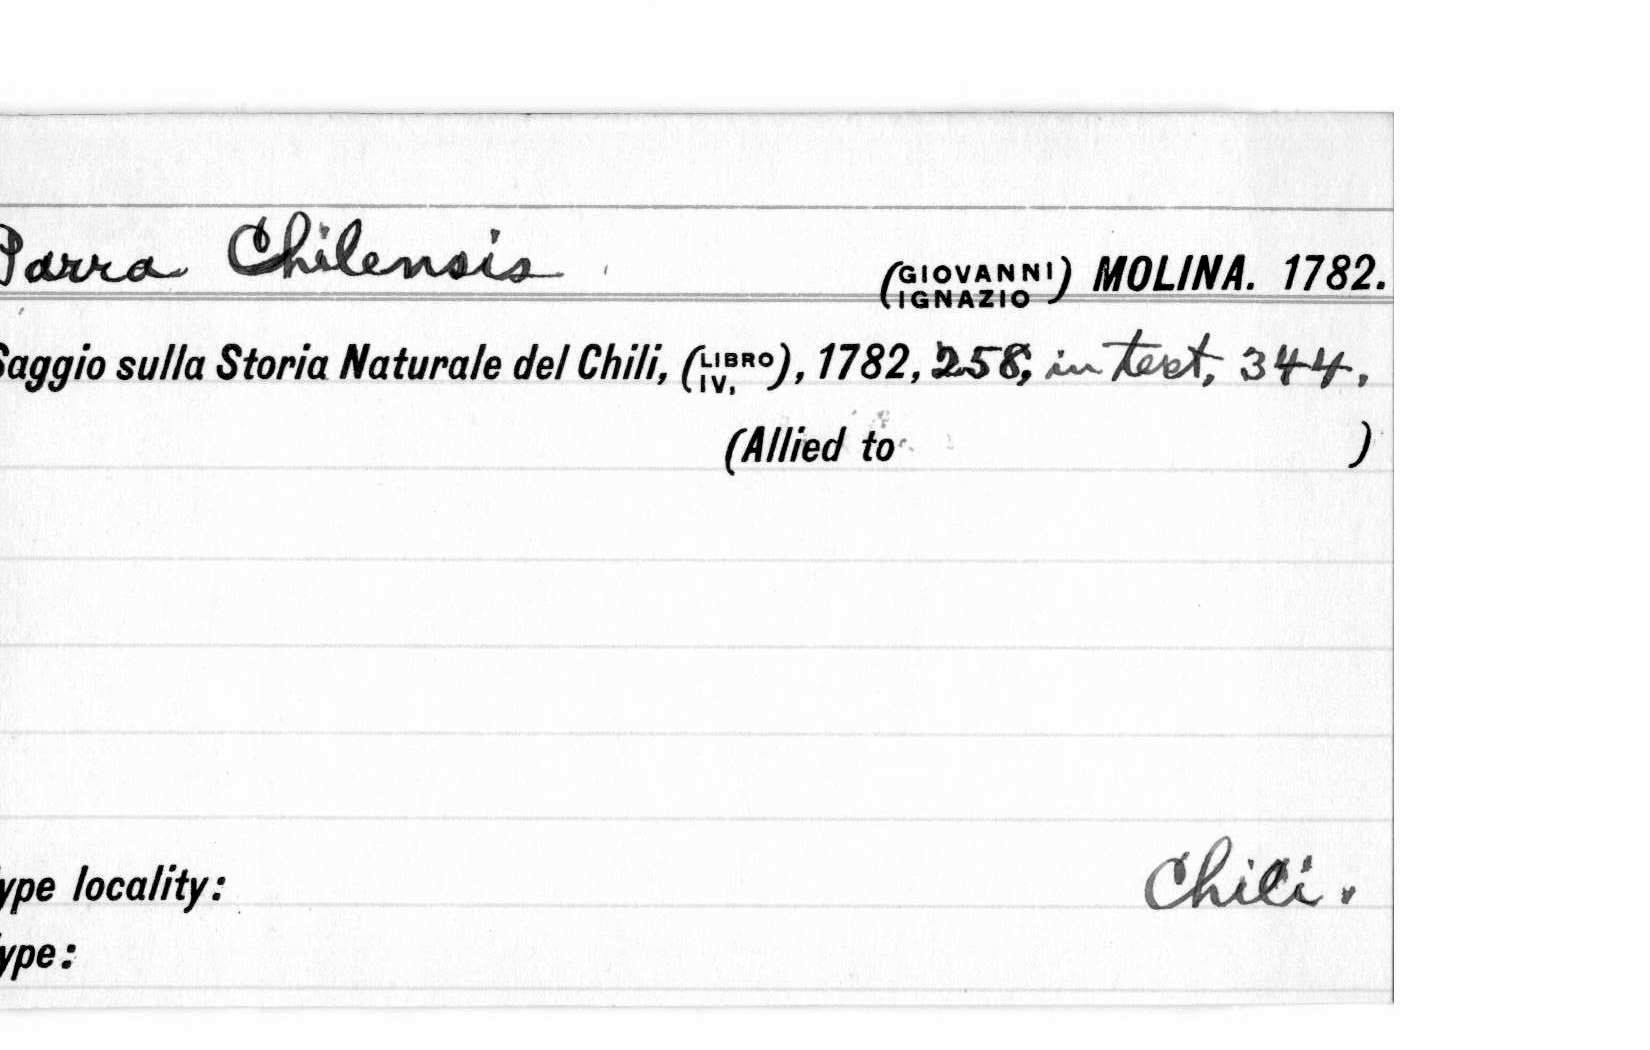 Parra Chilensis
(GIOVANNI IGNAZIO) MOLINA. 1782.
Saggio sulla Storia Naturale del Chili, (LIBRO IV,), 1782, 258, in text, 344.
(Allied to )
ype locality: Chili.
ype: